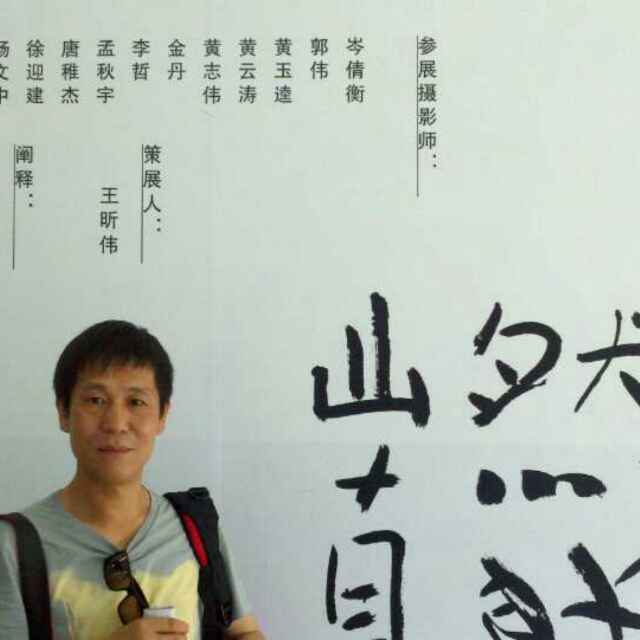 参展摄影师：
岑倩衡
郭伟
黄玉逵
黄云涛
黄志伟
金丹
李哲
孟秋宇
唐稚杰
徐迎建
杨文中
策展人：
王昕伟
阐释：
山